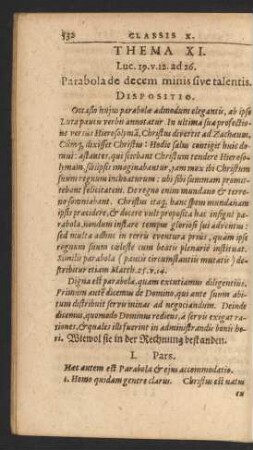 532 CLASSIS X.
THEMA XI.
Luc. 19. v. 12. ad 26.
Parabola de decem minis sive talentis.
DISPOSITIO.
Occasio hujus parabolæ admodum elegantis, ab ipso
Luca paucis verbis annotatur. In ultima sua profectio-
ne versus Hierosolymā, Christus divertit ad Zachæum,
Cumq; dixisset Christus: Hodie salus contigit huic do-
mui: astantes, qui sciebant Christum tendere Hieroso-
lymam, sic ipsis imaginabantur, jam mox ibi Christum
suum regnum inchoaturum: ubi sibi summam promit-
tebant felicitatem. De regno enim mundano & terre-
no somniabant. Christus itaq; hanc spem mundanam
ipsis præcidere, & docere vult proposita hac insigni pa-
rabola, nondum instare tempus gloriosi sui adventus:
sed multa adhuc in terris eventura prius, quàm ipse
regnum suum cæleste cum beatis plenariè instituat.
Similis parabola (paucis circumstantiis mutatis) de-
scribitur etiam Matth. 25. v. 14.
Digna est parabola, quam excutiamus diligentius.
Primum autē dicemus de Domino, qui ante suum abi-
tum distribuit servis minas ad negociandum. Deinde
dicemus, quomodo Dominus rediens, à servis exigat ra-
tiones, & quales illi fuerint in administrandis bonis he-
ri. Wie wol sie in der Rechnung bestanden.
I. Pars.
Hæc autem est Parabola & ejus accommodatio.
1. Homo quidam genere clarus. Christus est natus
ex